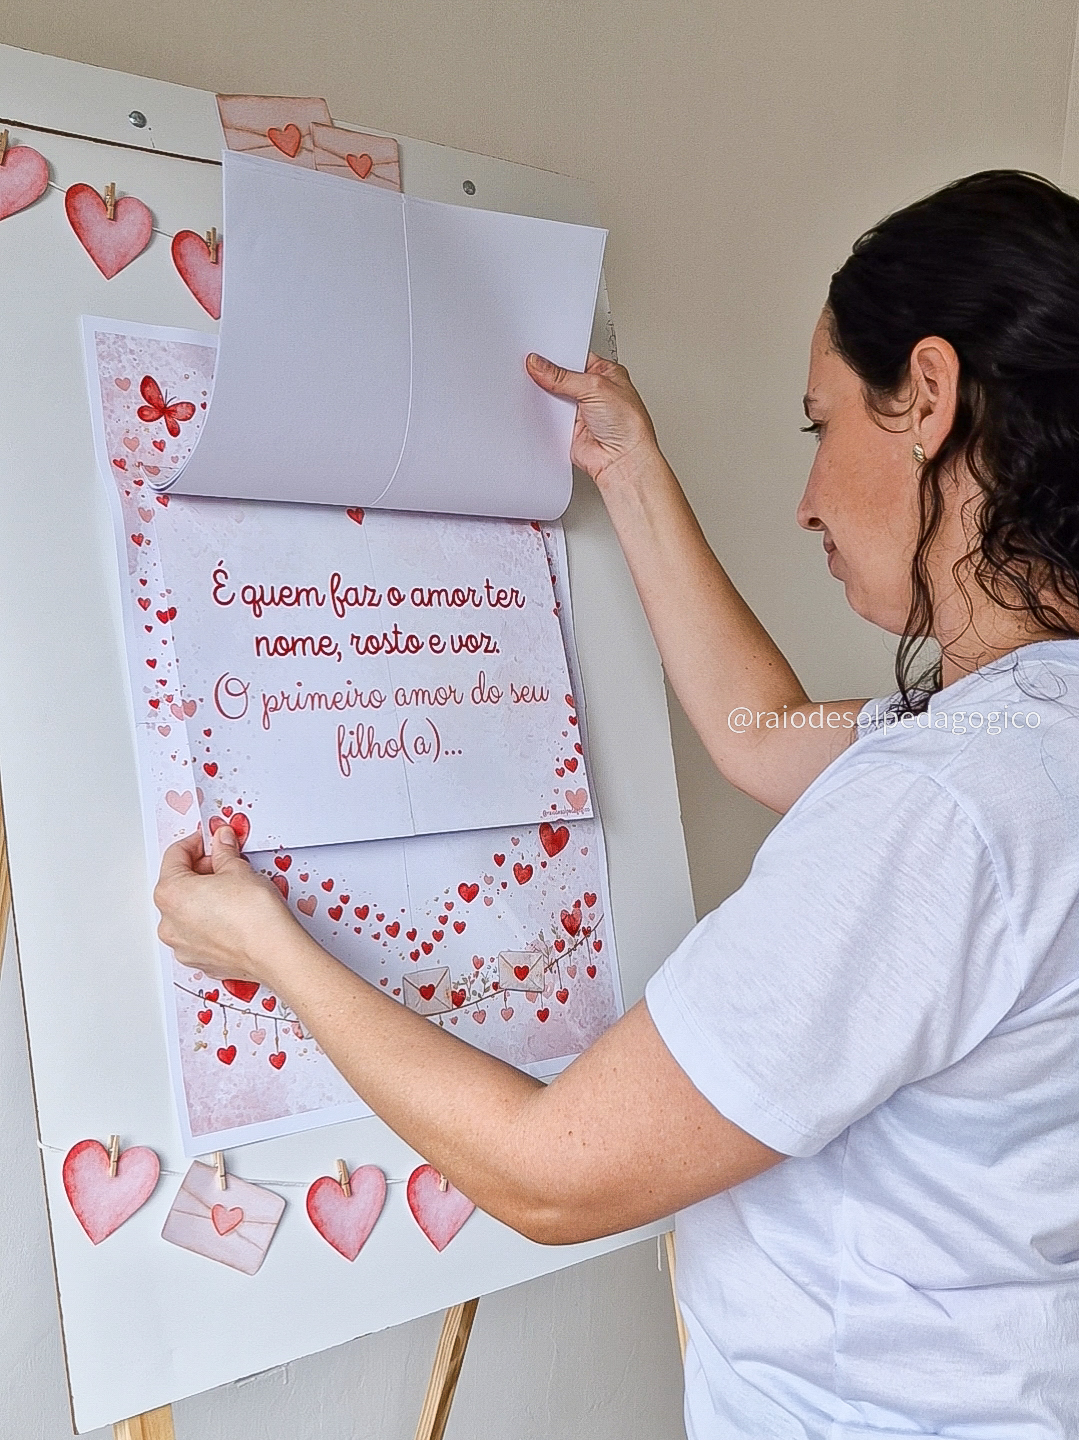 É quem faz o amor ter
nome, rosto e voz.
O primeiro amor do seu
filho(a)...
@raiodesolpedagogico
@raiodesolpedagogico